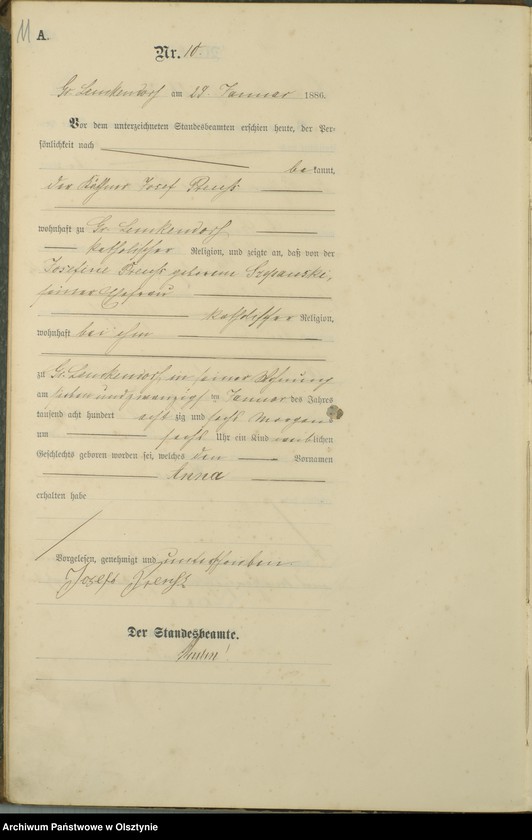 11
A.
Nr. 10.
Gr. Lemkendorf am 29. Januar 1886.
Vor dem unterzeichneten Standesbeamten erschien heute, der Per-
sönlichkeit nach
be kannt,
der Käthner Josef
wohnhaft zu Gr. Lemkendorf
katholischer Religion, und zeigte an, daß von der
Josefine geborene
seiner Ehefrau
katholischer Religion,
wohnhaft bei ihm
zu Gr. Lemkendorf, in seiner Wohnung
am sieben und zwanzigsten Januar des Jahres
tausend acht hundert acht zig und sechs Morgens
um sechs Uhr ein Kind weiblichen
Geschlechts geboren worden sei, welches den Vornamen
Anna
erhalten habe
Vorgelesen, genehmigt und unterschrieben
Josef
Der Standesbeamte.
Archiwum Państwowe w Olsztynie